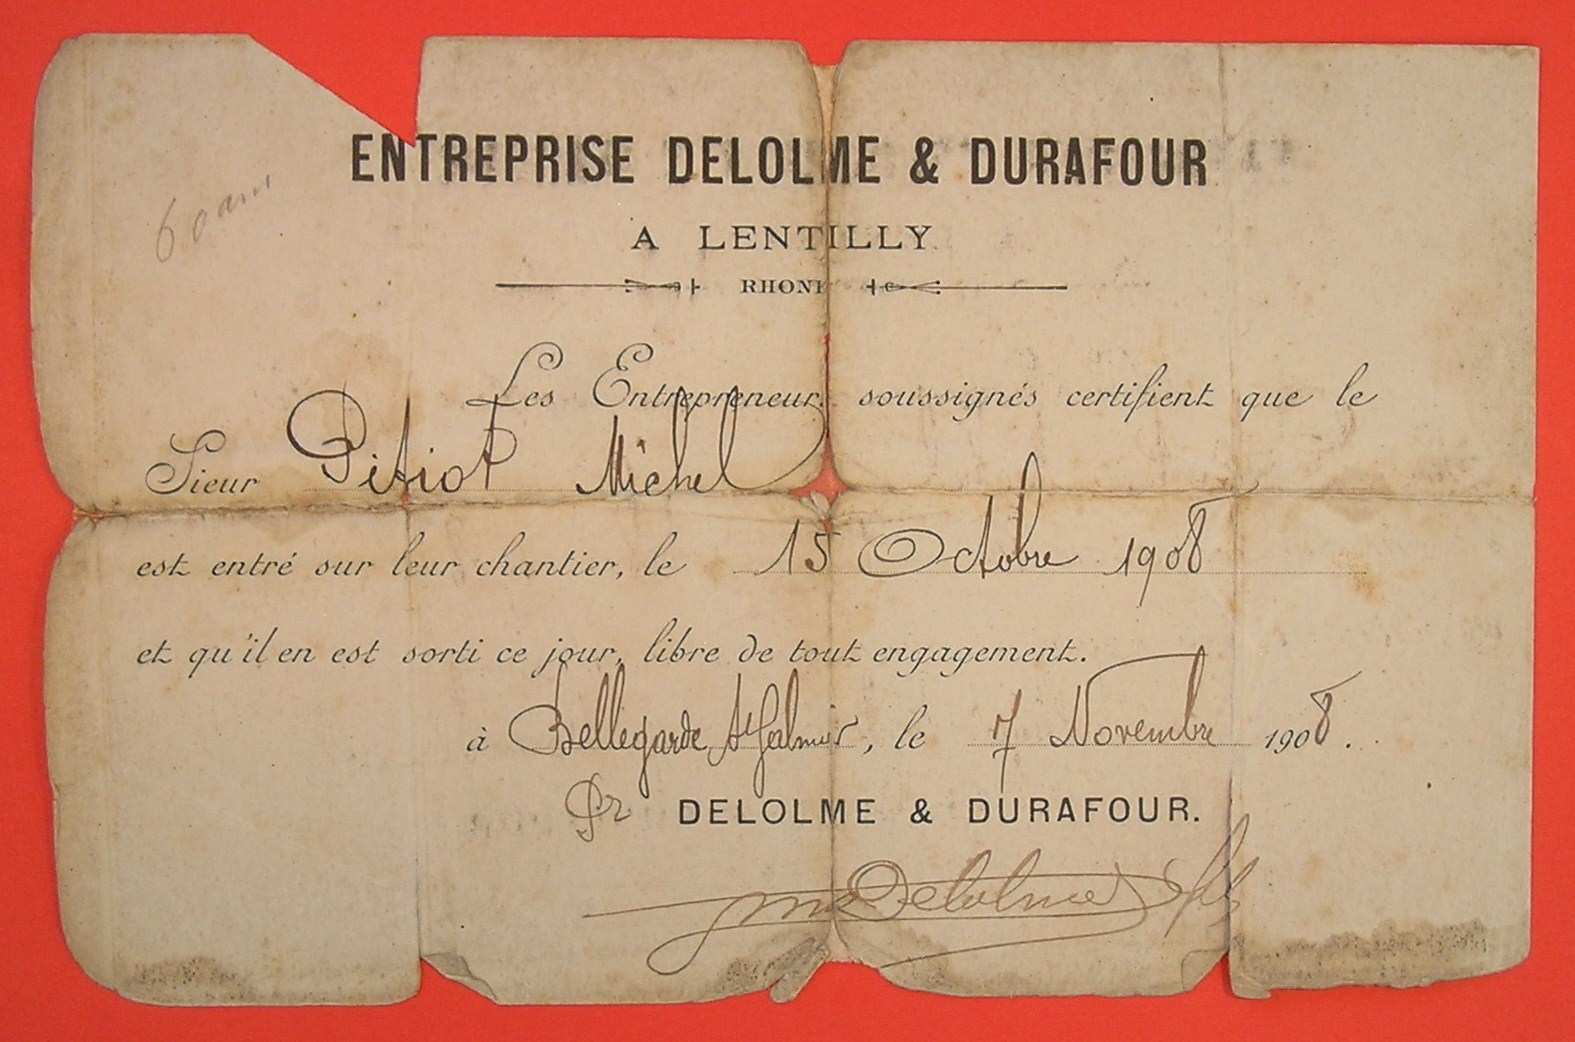 ENTREPRISE DELOLME & DURAFOUR
A LENTILLY
RHONE
60 ans
Les Entrepreneurs soussignés certifient que le
Sieur Pitiot Michel
est entré sur leur chantier, le 15 Octobre 1908
et qu'il en est sorti ce jour, libre de tout engagement.
à Bellegarde St Galmier, le 7 Novembre 1908.
Pr DELOLME & DURAFOUR.
Delolme fils